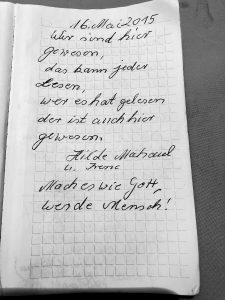 16. Mai 2015
Wir sind hier
gewesen,
das kann jeder
Lesen,
wer es hat gelesen
der ist auch hier
gewesen.
Hilde
u. Franc
Mach es wie Gott,
werde Mensch!